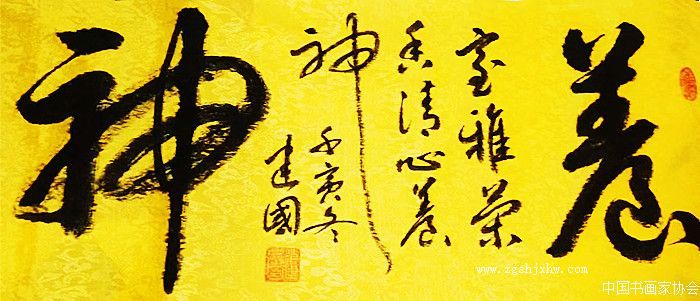 養
室雅蘭
香清心養
神
壬寅冬
建國
神
www.zgshjxhw.com
中国书画家协会